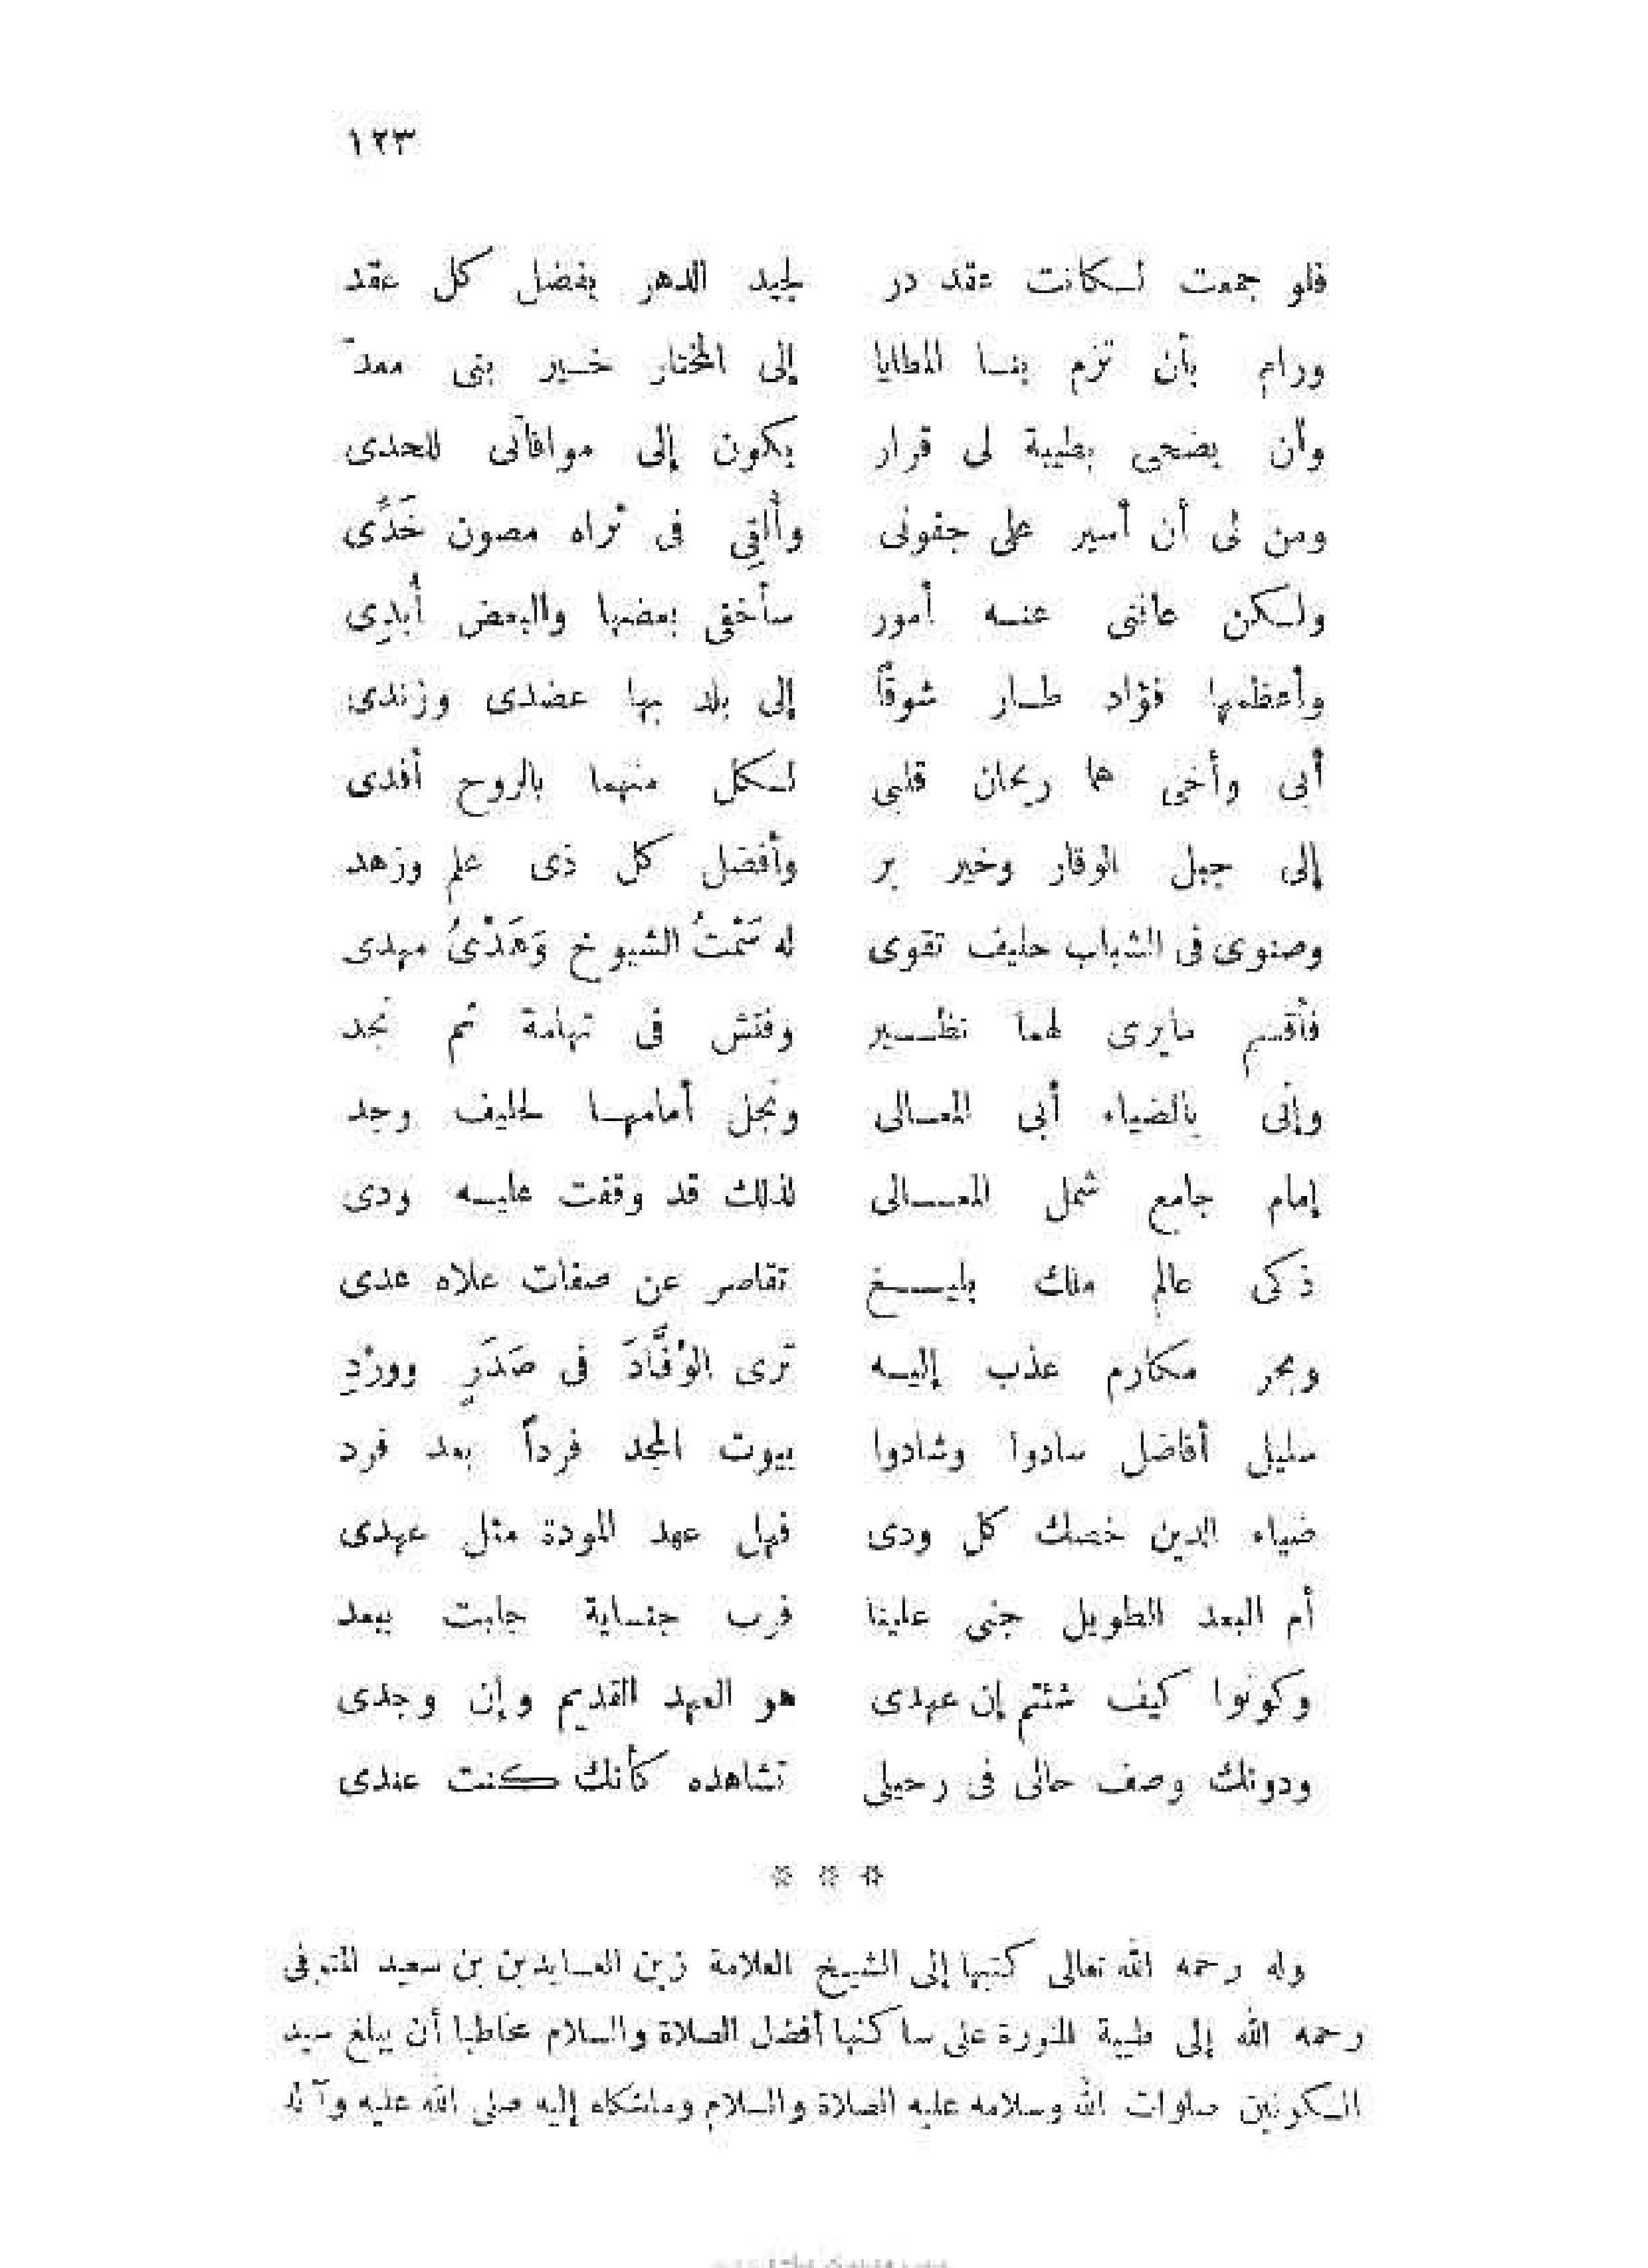 ١٢٣
فلو جمعت لـكانت عقد در لجيد الدهر يفضل كل عقد
ورام بأن تزم بنـا المطايا إلى المختار خـير بنى معدّ
وأن يضحى بطيبة لى قرار يكون إلى موافاتى للحدى
ومن لى أن أسير على جفونى وأُلقِي فى ثراه مصون خَدِّى
ولـكن عاقنى عنـه أمور سأخفى بعضها والبعض أُبدِى
وأعظمها فؤاد طـار شوقاً إلى بلد بها عضدى وزندى
أبى وأخى هما ريحان قلبى لـكل منهما بالروح أفدى
إلى جبل الوقار وخير بر وأفضل كل ذى علم وزهد
وصنوى فى الشباب حليف تقوى له سَمْتُ الشيوخ وَهَدْىُ مهدى
فأقسم مايرى لهما نظـــير وفتش فى تهامة ثم نجد
وإنى بالضياء أبى المعـالى ونجل أمامهـا لحليف وجد
إمام جامع شمل المعـــالى لذلك قد وقفت عليـه ودى
ذكى عالم ملك بليـــغ تقاصر عن صفات علاه عدى
وبحر مكارم عذب إليـه ترى الوُفَّادَ فى صَدَرٍ ووِرْدِ
سليل أفاضل سادوا وشادوا بيوت المجد فرداً بعد فرد
ضياء الدين خصك كل ودى فهل عهد المودة مثل عهدى
أم البعد الطويل جنى علينا فرب جنـاية جلبت ببعد
وكونوا كيف شئتم إن عهدى هو العهد القديم وإن وجدى
ودونك وصف حالى فى رحيلى تشاهده كأنك كنت عندى
* * *
وله رحمه الله تعالى كتبها إلى الشيخ العلامة زين العـابدين بن سعيد المتوفى
رحمه الله إلى طيبة المنورة على ساكنها أفضل الصلاة والسلام مخاطبا أن يبلغ سيد
الـكونين صلوات الله وسلامه عليه الصلاة والسلام وماشكاه إليه صلى الله عليه وآله